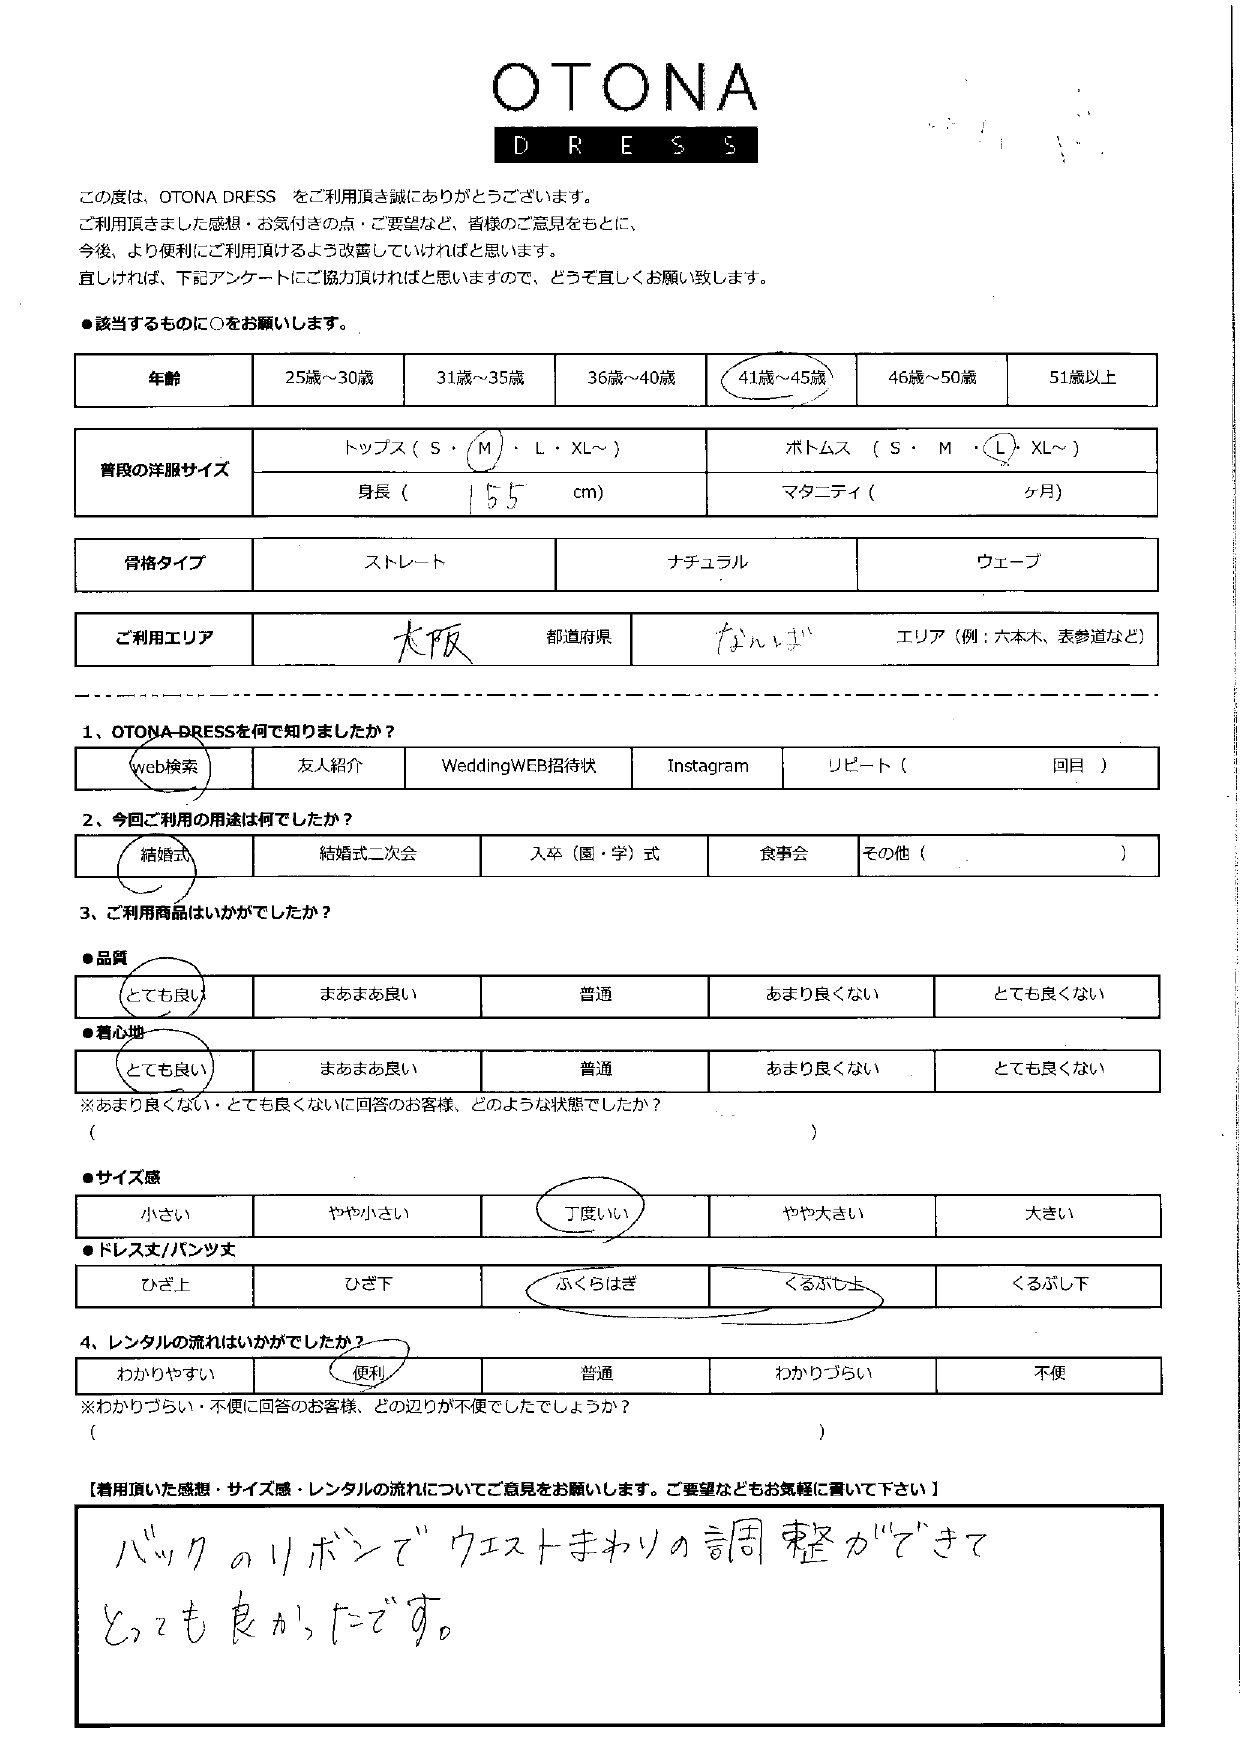 OTONA
DRESS
この度は、OTONA DRESS　をご利用頂き誠にありがとうございます。
ご利用頂きました感想・お気付きの点・ご要望など、皆様のご意見をもとに、
今後、より便利にご利用頂けるよう改善していければと思います。
宜しければ、下記アンケートにご協力頂ければと思いますので、どうぞ宜しくお願い致します。
●該当するものに○をお願いします。
年齢 25歳～30歳 31歳～35歳 36歳～40歳 41歳～45歳 46歳～50歳 51歳以上
普段の洋服サイズ トップス ( S ・ M ・ L ・ XL～ ) ボトムス ( S ・ M ・ L ・ XL～ )
身長 ( 155 cm) マタニティ ( ヶ月)
骨格タイプ ストレート ナチュラル ウェーブ
ご利用エリア 大阪 都道府県 なんば エリア（例：六本木、表参道など）
1、OTONA DRESSを何で知りましたか？
web検索 友人紹介 WeddingWEB招待状 Instagram リピート ( 回目 )
2、今回ご利用の用途は何でしたか？
結婚式 結婚式二次会 入卒（園・学）式 食事会 その他 ( )
3、ご利用商品はいかがでしたか？
●品質
とても良い まあまあ良い 普通 あまり良くない とても良くない
●着心地
とても良い まあまあ良い 普通 あまり良くない とても良くない
※あまり良くない・とても良くないに回答のお客様、どのような状態でしたか？
( )
●サイズ感
小さい やや小さい 丁度いい やや大きい 大きい
●ドレス丈/パンツ丈
ひざ上 ひざ下 ふくらはぎ くるぶし上 くるぶし下
4、レンタルの流れはいかがでしたか？
わかりやすい 便利 普通 わかりづらい 不便
※わかりづらい・不便に回答のお客様、どの辺りが不便でしたでしょうか？
( )
【着用頂いた感想・サイズ感・レンタルの流れについてご意見をお願いします。ご要望などもお気軽に書いて下さい】
バックのリボンでウエストまわりの調整ができて
とっても良かったです。